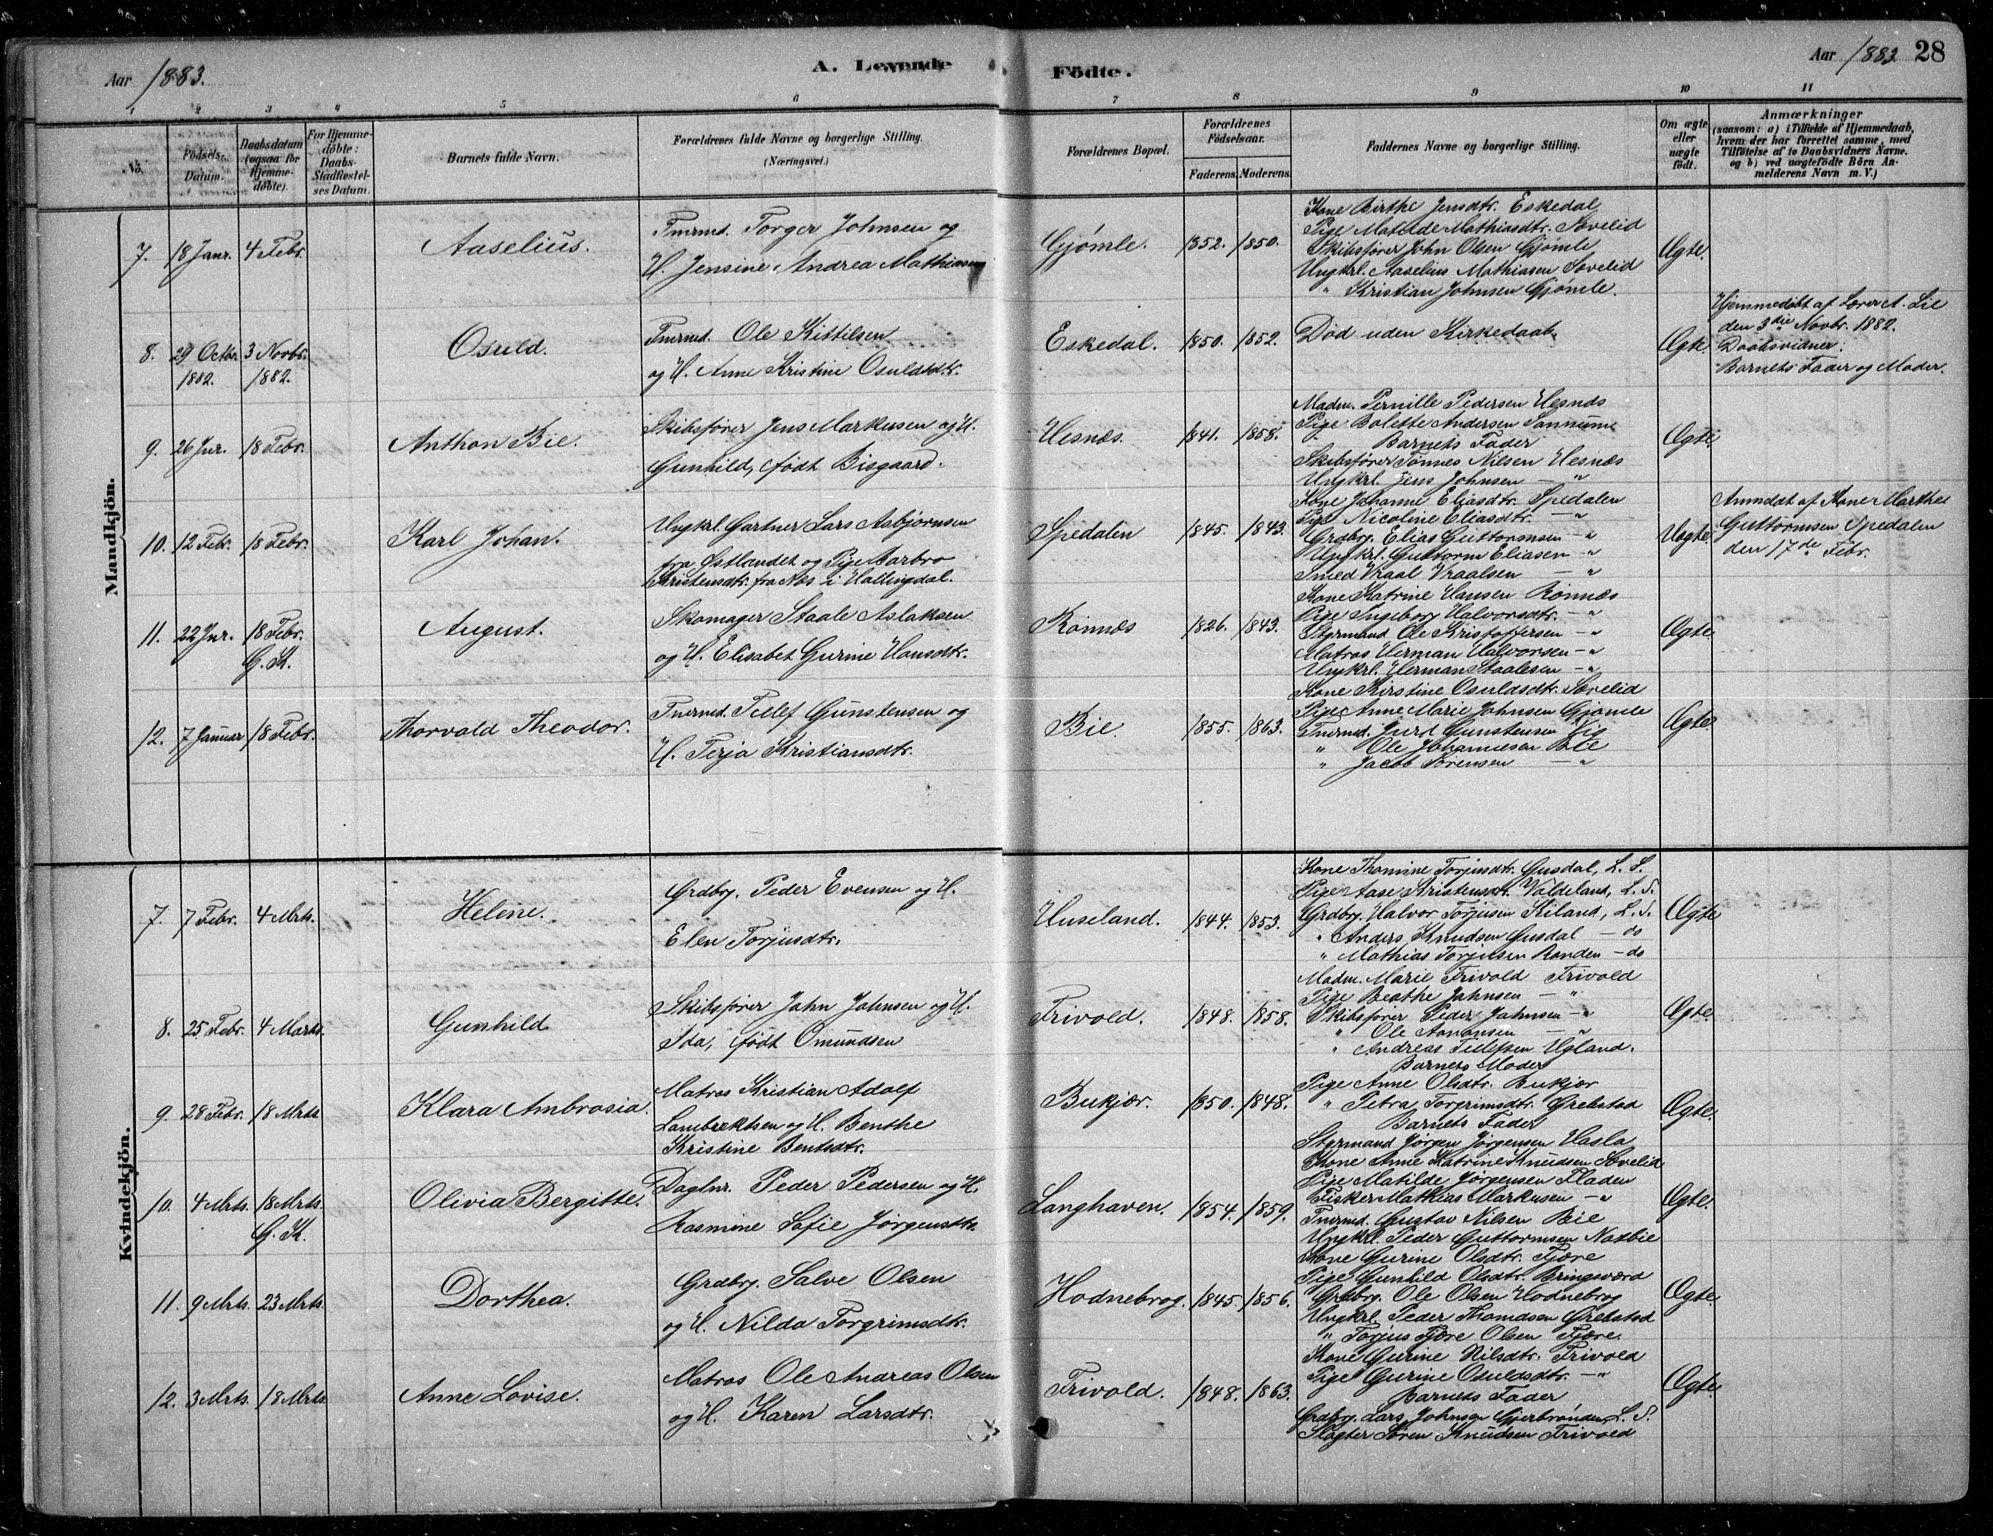 Aar 1883.
A. Levende Födte.
Aar 1883 28
1 2 3 4 5 6 7 8 9 10 11
No.
Födsels-Datum.
Daabsdatum (ogsaa for Hjemmedöbte).
For Hjemmedöbte: Daabs-Stadfæstelses Datum.
Barnets fulde Navn.
Forældrenes fulde Navne og borgerlige Stilling. (Næringsvei.)
Forældrenes Bopæl.
Forældrenes Födselsaar.
Faderens. Moderens.
Faddernes Navne og borgerlige Stilling.
Om ægte eller uægte födt.
Anmærkninger
(saasom: a) i Tilfælde af Hjemmedaab,
hvem der har forrettet samme, med
Tilföielse af to Daabsvidners Navne.
og b) ved uægtefödte Börn Anmelderens Navn m. V.)
Mandkjön.
7. 18 Janr. 4 Febr. Aaselius.
Tmrmd. Torger Johnsen og
H. Jensine Andrea Mathiasen
Gjömle. 1852. 1850.
Kone Birthe Jensdtr. Eskedal
Pige Matilde Mathiasdtr. Sævelid
Skibsfører John Olsen Gjömle
Ungkrl. Aaselius Mathiasen Sævelid
" Kristian Johnsen Gjömle.
Ægte.
8. 29 Octbr. 1882. 3 Novbr. 1882. Osuld.
Tmrmd. Ole Kittilsen
og H. Anne Kristine Osuldsdtr.
Eskedal. 1850. 1852.
Död uden Kirkedaab.
Ægte.
Hjemmedöbt af Lærer A. Lie
den 3die Novbr. 1882.
Daabsvidner:
Barnets Fader og Moder.
9. 26 Jnr. 18 Febr. Anthon Bie.
Skibsfører Jens Markusen og H.
Gunhild, født Bisgaard.
Hesnæs. 1841. 1858.
Madm. Pernille Pedersen Hesnæs
Pige Bolette Andersen Sannum
Barnets Fader
Skibsfører Tönnes Nilsen Hesnæs
Ungkrl. Jens Johnsen — "
Ægte
10. 12 Febr. 18 Febr. Karl Johan.
Ungkrl. Gartner Lars Asbjørnsen
fra Østlandet og Pige Barbro
Kristensdtr. fra Næs i Hallingdal.
Spedalen 1845. 1843.
Kone Johanne Eliasdtr. Spedalen
Pige Nicoline Eliasdtr. — "
Grdbrg. Elias Guttormsen — "
Ungkrl. Guttorm Eliasen — "
Smed Vraal Vraalsen — "
Uægte
Anmeldt af Kone Marthe
Guttormsen Spedalen
den 17de Febr.
11. 22 Jnr. 18 Febr. G. K. August.
Skomager Staale Aslaksen
og H. Elisabet Gurine Hansdtr.
Rönnæs 1826. 1843.
Kone Katrine Hansen Rönnæs
Pige Ingeborg Halvorsdtr. — "
Styrmand Ole Kristoffersen — "
Matros Herman Halvorsen — "
Ungkrl. Herman Staalesen — "
Ægte.
12. 7 Januar 18 Febr. Thorvald Theodor.
Tmrmd. Tellef Gunstensen og
H. Terja Kristiansdtr.
Bie. 1855. 1863.
Kone Kirstine Osuldsdtr. Sævelid
Pige Anne Marie Johnsen Gjömle
Tmrmd. Jurd Gunstensen Vig
" Ole Johannesen Bie
" Jacob Sörensen — "
Ægte.
Kvindekjön.
7. 7 Febr. 4 Mrts. Helene.
Grdbrg. Peder Evensen og H.
Elen Torjusdtr.
Huseland. 1844. 1853.
Kone Thomine Torjusdtr. Gusdal, L. S.
Pige Aase Kristensdtr. Valdeland, L. S.
Grdbrg. Halvor Torjusen Kiland, L. S.
" Anders Knudsen Gusdal — do
" Mathias Torjussen Randen — do
Ægte
8. 25 Febr. 4 Marts. Gunhild
Skibsfører John Johnsen og H.
Ida, født Omundsen
Frivold. 1848. 1858.
Madm. Marie Frivold Frivold
Pige Beathe Johnsen — "
Skibsfører Peder Johnsen — "
" Ole Aanonsen — "
" Andreas Tellefsen Ugland.
Ægte.
9. 28 Febr. 18 Mrts. Klara Ambrosia.
Matros Kristian Adolf
Lambrektsen og H. Benthe
Kristine Bentsdtr.
Bukjær. 1850. 1848.
Barnets Moder
Pige Anne Olsdtr. Bukjær
" Petra Torgrimsdtr. Grebstad
Barnets Fader
Styrmand Jørgen Jørgensen Hasla
Ægte.
10. 4 Mrts. 18 Mrts. G. K. Olivia Bergitte.
Daglnr. Peder Pedersen og H.
Rasmine Sofie Jörgensdtr.
Langhaven. 1854. 1859.
Kone Anne Katrine Knudsen Sævelid
Pige Matilde Jörgensen Fladen
Fisker Mathias Markusen — "
Tmrmd. Gustav Nilsen Bie
Ungkrl. Peder Guttormsen Naxbie
Ægte.
11. 9 Mrts. 23 Mrts. Dorthea.
Grdbrg. Salve Olsen
og H. Nilda Torgrimsdtr.
Hodnebrog. 1845. 1856.
Kone Gurine Olsdtr. Fjære
Pige Gunhild Olsdtr. Bringsværd
Grdbrg. Ole Olsen Hodnebrog
Ungkrl. Peder Thomasen Grebstad
" Torjus Fjære Olsen Fjære.
Ægte.
12. 3 Mrts. 18 Mrts. Anne Lovise.
Matros Ole Andreas Olsen
og H. Karen Larsdtr.
Frivold. 1848. 1863.
Kone Gurine Nilsdtr. Frivold
Pige Gurine Osuldsdtr. — "
Barnets Fader
Grdbrg. Lars Johnsen Gjerbrönden, L. S.
Slagter Sören Knudsen Frivold
Ægte.